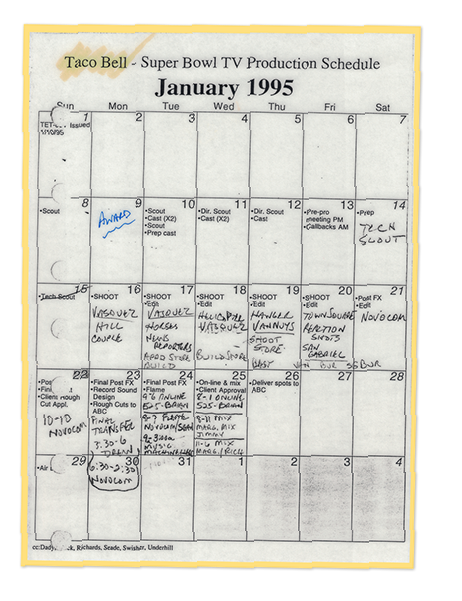 Taco Bell - Super Bowl TV Production Schedule
January 1995
Sun Mon Tue Wed Thu Fri Sat
1 2 3 4 5 6 7
Issued
8 9 10 11 12 13 14
•Scout
AWARD
•Scout
•Cast (X2)
•Scout
•Prep cast
•Dir. Scout
•Cast (X2)
•Dir. Scout
•Cast
•Pre-pro
meeting PM
•Callbacks AM
•Prep
TECH
SCOUT
15 16 17 18 19 20 21
•Tech Scout
•SHOOT
VASQUEZ
HILL
COUPLE
•SHOOT
•Edit
VASQUEZ
HORSES
NEWS
REPORTERS
STORE
BUILD
•SHOOT
•Edit
VASQUEZ
BUILD STORE
•SHOOT
•Edit
HANGER
VAN NUYS
SHOOT
STORE
•SHOOT
•Edit
TOWN SQUARE
REACTION
SHOTS
SAN
GABRIEL
•Post FX
•Edit
NOVOCOM
22 23 24 25 26 27 28
•Client Rough
Cut Appl.
10-10
NOVOCOM
•Final Post FX
•Record Sound
Design
•Rough Cuts to
ABC
FINAL
TRANSFER
3:30-6
•Final Post FX
•Flame
9-6 ONLINE
525-BRIAN
MUSIC
•On-line & mix
•Client Approval
8-1 ONLINE
525-BRIAN
8-11 MIX
MARG. MIX
JIMMY
11-6 MIX
MARG./RICH
•Deliver spots to
ABC
29 30 31 1 2 3 4
•Air
6:30-2:30
NOVOCOM
Richards, Seade, Swisher, Underhill